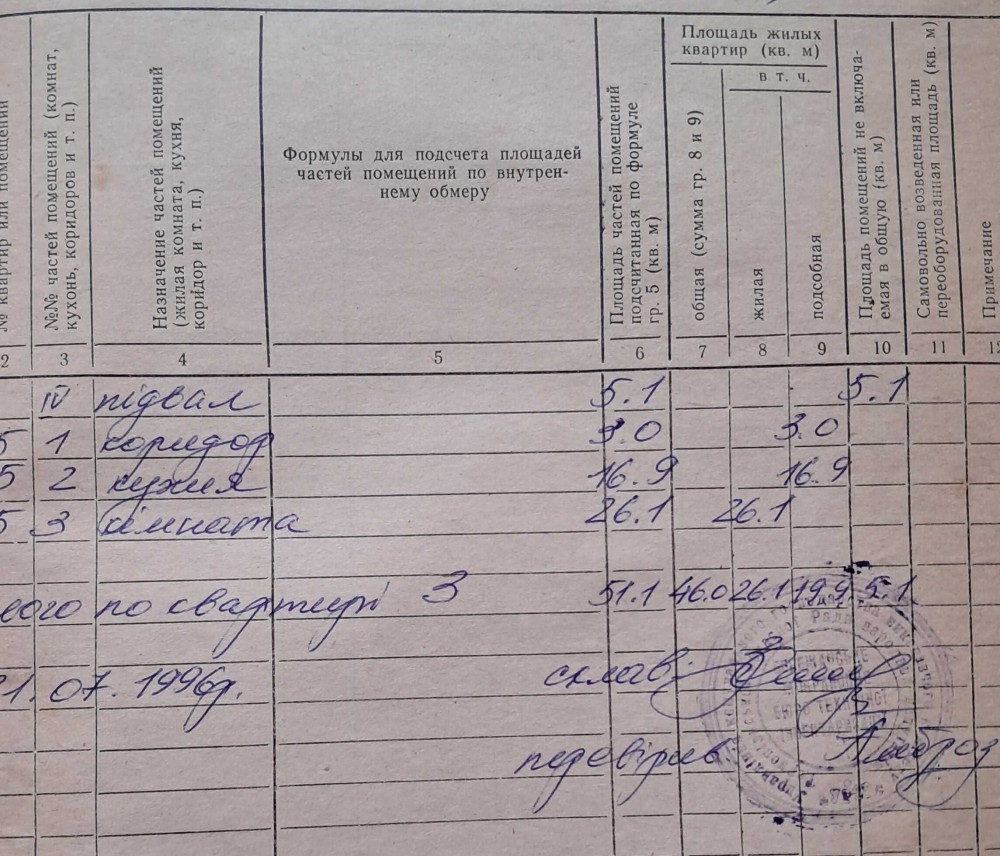 № квартир или помещений
№№ частей помещений (комнат, кухонь, коридоров и т. п.)
Назначение частей помещений (жилая комната, кухня, коридор и т. п.)
Формулы для подсчета площадей
частей помещений по внутрен-
нему обмеру
Площадь частей помещений подсчитанная по формуле гр. 5 (кв. м)
Площадь жилых
квартир (кв. м)
общая (сумма гр. 8 и 9)
в т. ч.
жилая
подсобная
Площадь помещений не включа-
емая в общую (кв. м)
Самовольно возведенная или переоборудованная площадь (кв. м)
Примечание
2 3 4 5 6 7 8 9 10 11 12
IV підвал 5.1 5.1
5 1 коридор 3.0 3.0
5 2 кухня 16.9 16.9
5 3 кімната 26.1 26.1
ього по квартирі 3 51.1 46.0 26.1 19.9 5.1
1.07.1996р. склав:
перевірив